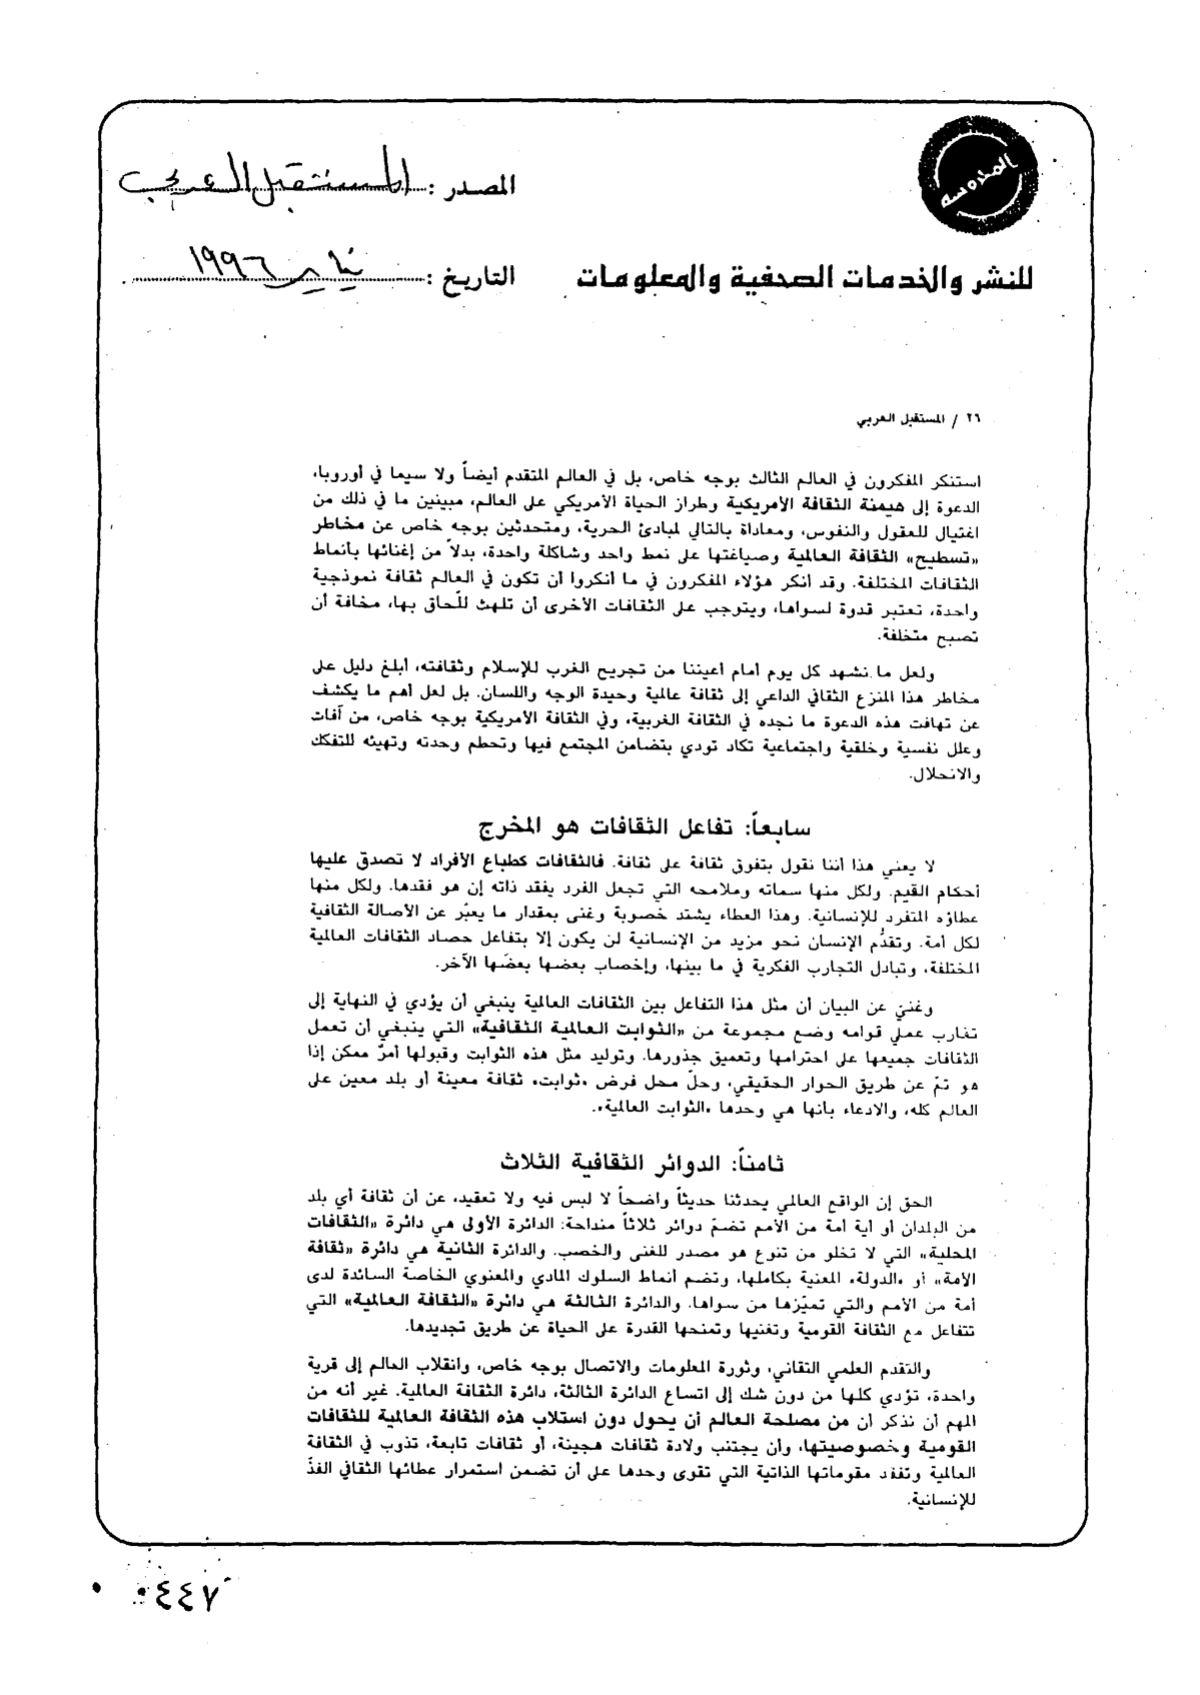 المحروسة
المصدر : المستقبل العربي
للنشر والخدمات الصحفية والمعلومات
التاريخ : يناير ١٩٩٦
٢٦ / المستقبل العربي
استنكر المفكرون في العالم الثالث بوجه خاص، بل في العالم المتقدم أيضاً ولا سيما في أوروبا،
الدعوة إلى هيمنة الثقافة الأمريكية وطراز الحياة الأمريكي على العالم، مبينين ما في ذلك من
اغتيال للعقول والنفوس، ومعاداة بالتالي لمبادئ الحرية، ومتحدثين بوجه خاص عن مخاطر
«تسطيح» الثقافة العالمية وصياغتها على نمط واحد وشاكلة واحدة، بدلاً من إغنائها بأنماط
الثقافات المختلفة. وقد أنكر هؤلاء المفكرون في ما أنكروا أن تكون في العالم ثقافة نموذجية
واحدة، تعتبر قدوة لسواها، ويتوجب على الثقافات الأخرى أن تلهث للّحاق بها، مخافة أن
تصبح متخلفة.
ولعل ما نشهد كل يوم أمام أعيننا من تجريح الغرب للإسلام وثقافته، أبلغ دليل على
مخاطر هذا المنزع الثقافي الداعي إلى ثقافة عالمية وحيدة الوجه واللسان. بل لعل أهم ما يكشف
عن تهافت هذه الدعوة ما نجده في الثقافة الغربية، وفي الثقافة الأمريكية بوجه خاص، من آفات
وعلل نفسية وخلقية واجتماعية تكاد تودي بتضامن المجتمع فيها وتحطم وحدته وتهيئه للتفكك
والانحلال.
سابعاً: تفاعل الثقافات هو المخرج
لا يعني هذا أننا نقول بتفوق ثقافة على ثقافة. فالثقافات كطباع الأفراد لا تصدق عليها
أحكام القيم. ولكل منها سماته وملامحه التي تجعل الفرد يفقد ذاته إن هو فقدها. ولكل منها
عطاؤه المتفرد للإنسانية. وهذا العطاء يشتد خصوبة وغنى بمقدار ما يعبّر عن الأصالة الثقافية
لكل أمة. وتقدُّم الإنسان نحو مزيد من الإنسانية لن يكون إلا بتفاعل حصاد الثقافات العالمية
المختلفة، وتبادل التجارب الفكرية في ما بينها، وإخصاب بعضها بعضَها الآخر.
وغنيّ عن البيان أن مثل هذا التفاعل بين الثقافات العالمية ينبغي أن يؤدي في النهاية إلى
تقارب عملي قوامه وضع مجموعة من «الثوابت العالمية الثقافية» التي ينبغي أن تعمل
الثقافات جميعها على احترامها وتعميق جذورها. وتوليد مثل هذه الثوابت وقبولها أمرٌ ممكن إذا
هو تمّ عن طريق الحوار الحقيقي، وحلّ محل فرض «ثوابت» ثقافة معينة أو بلد معين على
العالم كله، والادعاء بأنها هي وحدها «الثوابت العالمية».
ثامناً: الدوائر الثقافية الثلاث
الحق إن الواقع العالمي يحدثنا حديثاً واضحاً لا لبس فيه ولا تعقيد، عن أن ثقافة أي بلد
من البلدان أو أية أمة من الأمم تضمّ دوائر ثلاثاً منداحة: الدائرة الأولى هي دائرة «الثقافات
المحلية» التي لا تخلو من تنوع هو مصدر للغنى والخصب. والدائرة الثانية هي دائرة «ثقافة
الأمة» أو «الدولة» المعنية بكاملها، وتضم أنماط السلوك المادي والمعنوي الخاصة السائدة لدى
أمة من الأمم والتي تميّزها من سواها. والدائرة الثالثة هي دائرة «الثقافة العالمية» التي
تتفاعل مع الثقافة القومية وتغنيها وتمنحها القدرة على الحياة عن طريق تجديدها.
والتقدم العلمي التقاني، وثورة المعلومات والاتصال بوجه خاص، وانقلاب العالم إلى قرية
واحدة، تؤدي كلها من دون شك إلى اتساع الدائرة الثالثة، دائرة الثقافة العالمية. غير أنه من
المهم أن نذكر أن من مصلحة العالم أن يحول دون استلاب هذه الثقافة العالمية للثقافات
القومية وخصوصيتها، وأن يجتنب ولادة ثقافات هجينة، أو ثقافات تابعة، تذوب في الثقافة
العالمية وتفقد مقوماتها الذاتية التي تقوى وحدها على أن تضمن استمرار عطائها الثقافي الفذّ
للإنسانية.
٠٤٤٧